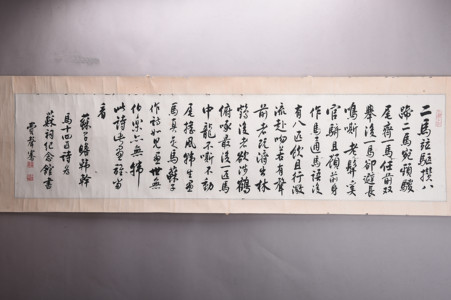 二馬並驅攢八
蹄二馬宛頸鬃
尾齊一馬任前双
舉後一馬卻避長
鳴嘶老髯奚
官騎且顧前身
作馬通馬語後
有八匹飲且行微
流赴吻若有聲
前者既濟出林
鶴後者欲涉鶴
俯啄最後一匹馬
中龍不嘶不動
尾搖風韓生畫
馬真是馬蘇子
作詩如見畫世無
伯樂亦無韓
此詩此畫誰當
看
蘇公 韓幹
馬十四匹詩為
蘇祠紀念館書